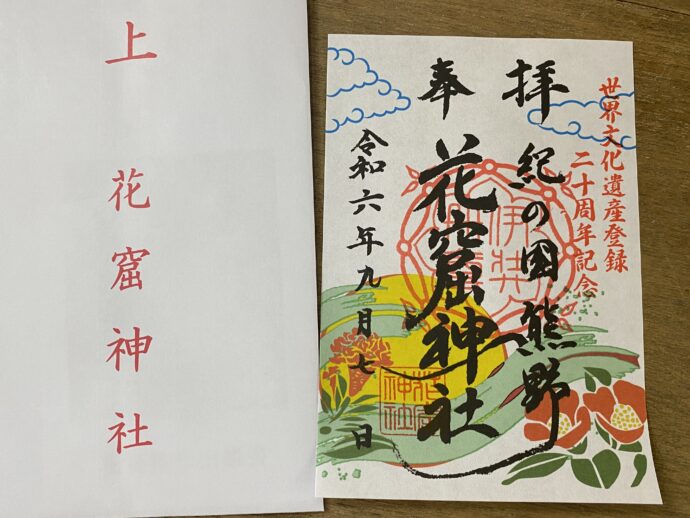 上
花窟神社
世界文化遺産登録
二十周年記念
奉拝
紀の国熊野
花窟神社
令和六年九月七日
花窟
神社